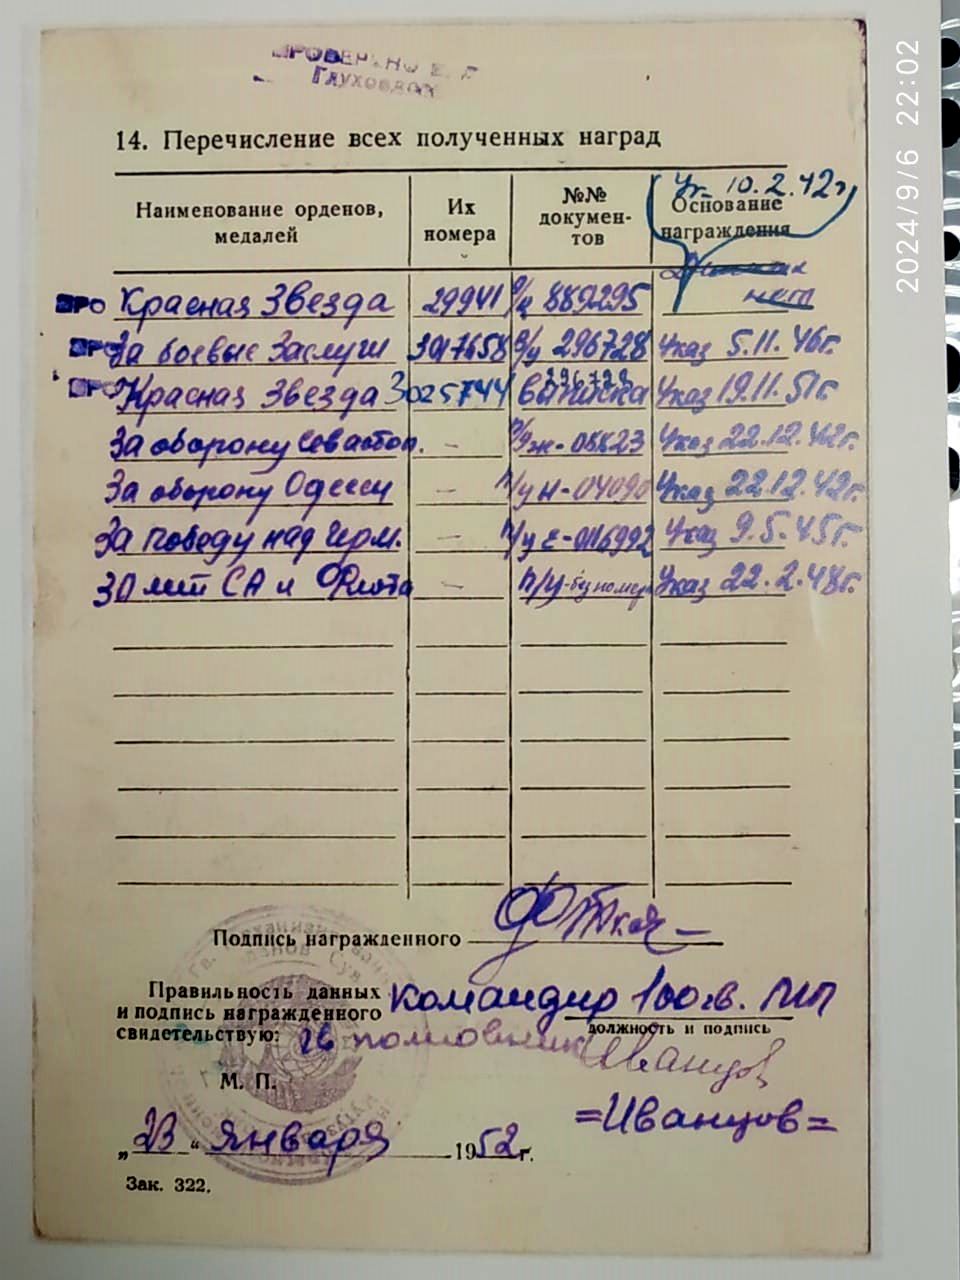 ПРОВЕРЕНО
14. Перечисление всех полученных наград
Ук. 10.2.42г
Наименование орденов, медалей
Их номера
№№ докумен-тов
Основание награждения
нета
ПРО Красная Звезда 29941 889295
ПРО За боевые Заслуги 3017658 296728 Указ 5.11.46г.
296728
ПРО Красная Звезда 3025744 Выписка Указ 19.11.51г
За оборону Севастоп. — Указ 22.12.42г.
За оборону Одессы — П/у Н-04090 Указ 22.12.42г.
За победу над Герм. — П/у Е-0116992 Указ 9.5.45г.
30 лет СА и Флота — П/У-без номера Указ 22.2.48г.
Подпись награжденного
Правильность данных командир 100 гв. МП
и подпись награжденного
должность и подпись
свидетельствую: гв полковник Иванцов
М. П.
=Иванцов=
„23“ января 1952г.
Зак. 322.
2024/9/6 22:02